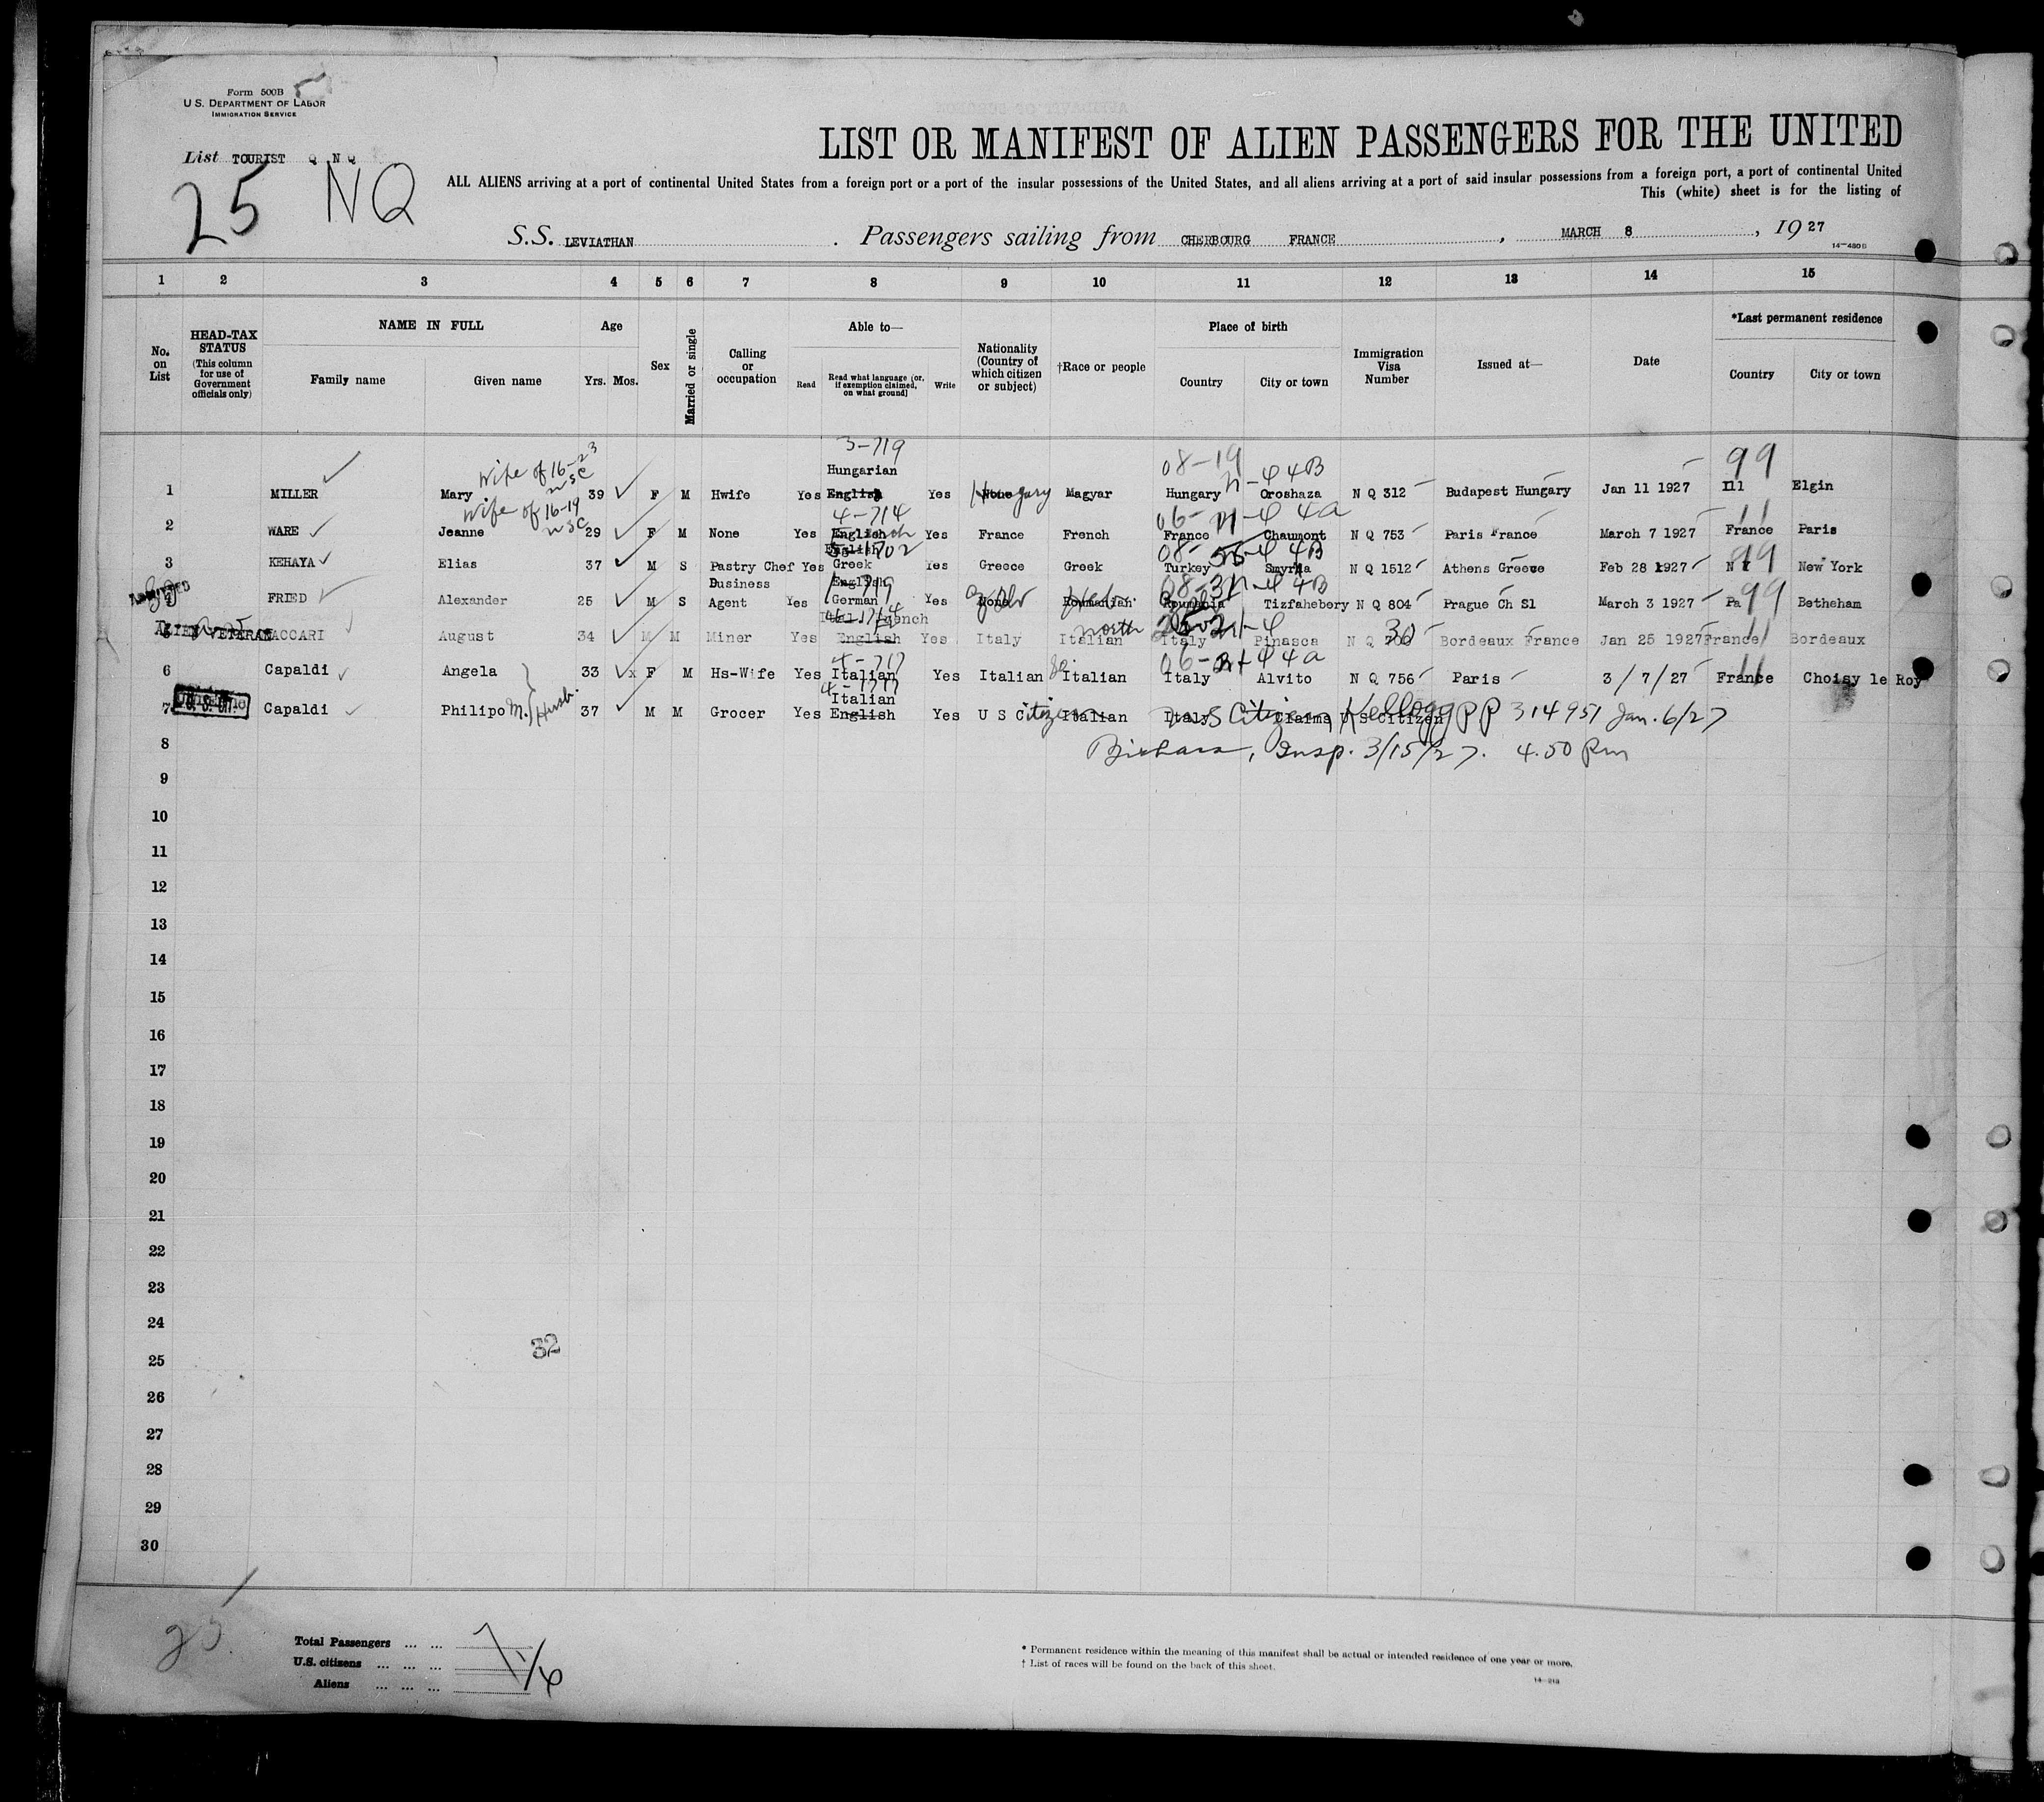 Form 500B
U.S. DEPARTMENT OF LABOR
IMMIGRATION SERVICE
LIST OR MANIFEST OF ALIEN PASSENGERS FOR THE UNITED
List TOURIST Q N Q
25 NQ
ALL ALIENS arriving at a port of continental United States from a foreign port or a port of the insular possessions of the United States, and all aliens arriving at a port of said insular possessions from a foreign port, a port of continental United
This (white) sheet is for the listing of
S.S. LEVIATHAN . Passengers sailing from CHERBOURG FRANCE , MARCH 8 , 1927
14—480 B
1 2 3 4 5 6 7 8 9 10 11 12 13 14 15
No. on List
HEAD-TAX STATUS (This column for use of Government officials only)
NAME IN FULL Family name Given name
Age Yrs. Mos.
Sex
Married or single
Calling or occupation
Able to— Read Read what language [or, if exemption claimed, on what ground] Write
Nationality (Country of which citizen or subject)
†Race or people
Place of birth Country City or town
Immigration Visa Number
Issued at—
Date
*Last permanent residence Country City or town
3-719
Wife of 16-23 Hungarian 08-19 4B 99
1 MILLER Mary 39 F M Hwife Yes English Yes None Hungary Magyar Hungary Oroshaza N Q 312 Budapest Hungary Jan 11 1927 Ill Elgin
Wife of 16-19 4-714 06- 4a 11
2 WARE Jeanne 29 F M None Yes English Yes France French France Chaumont N Q 753 Paris France March 7 1927 France Paris
English 08- 4B 99
3 KEHAYA Elias 37 M S Pastry Chef Yes Greek Yes Greece Greek Turkey Smyrna N Q 1512 Athens Greece Feb 28 1927 N Y New York
Business English 4B 99
4 FRIED Alexander 25 M S Agent Yes German Yes None Roumanian Roumania Tizfahebery N Q 804 Prague Ch Sl March 3 1927 Pa Betheham
ADMITTED
French north 11
5 ALIEN VETERAN ACCARI August 34 M M Miner Yes English Yes Italy Italian Italy Pinasca N Q Bordeaux France Jan 25 1927 France Bordeaux
4-717 06- 44a 11
6 Capaldi Angela 33 x F M Hs-Wife Yes Italian Yes Italian So Italian Italy Alvito N Q 756 Paris 3/7/27 France Choisy le Roy
Italian
7 Capaldi Philipo M. Husb. 37 M M Grocer Yes English Yes U S Citizen Italian Italy U S Citizen Claims U S Citizen Kellogg PP 314951 Jan. 6/27
8 Insp. 3/15/27. 4.50 Pm
9
10
11
12
13
14
15
16
17
18
19
20
21
22
23
24
32
25
26
27
28
29
30
25
Total Passengers ... ... 7
U.S. citizens ... ... ... 1
Aliens ... ... ... 6
* Permanent residence within the meaning of this manifest shall be actual or intended residence of one year or more.
† List of races will be found on the back of this sheet.
14—213